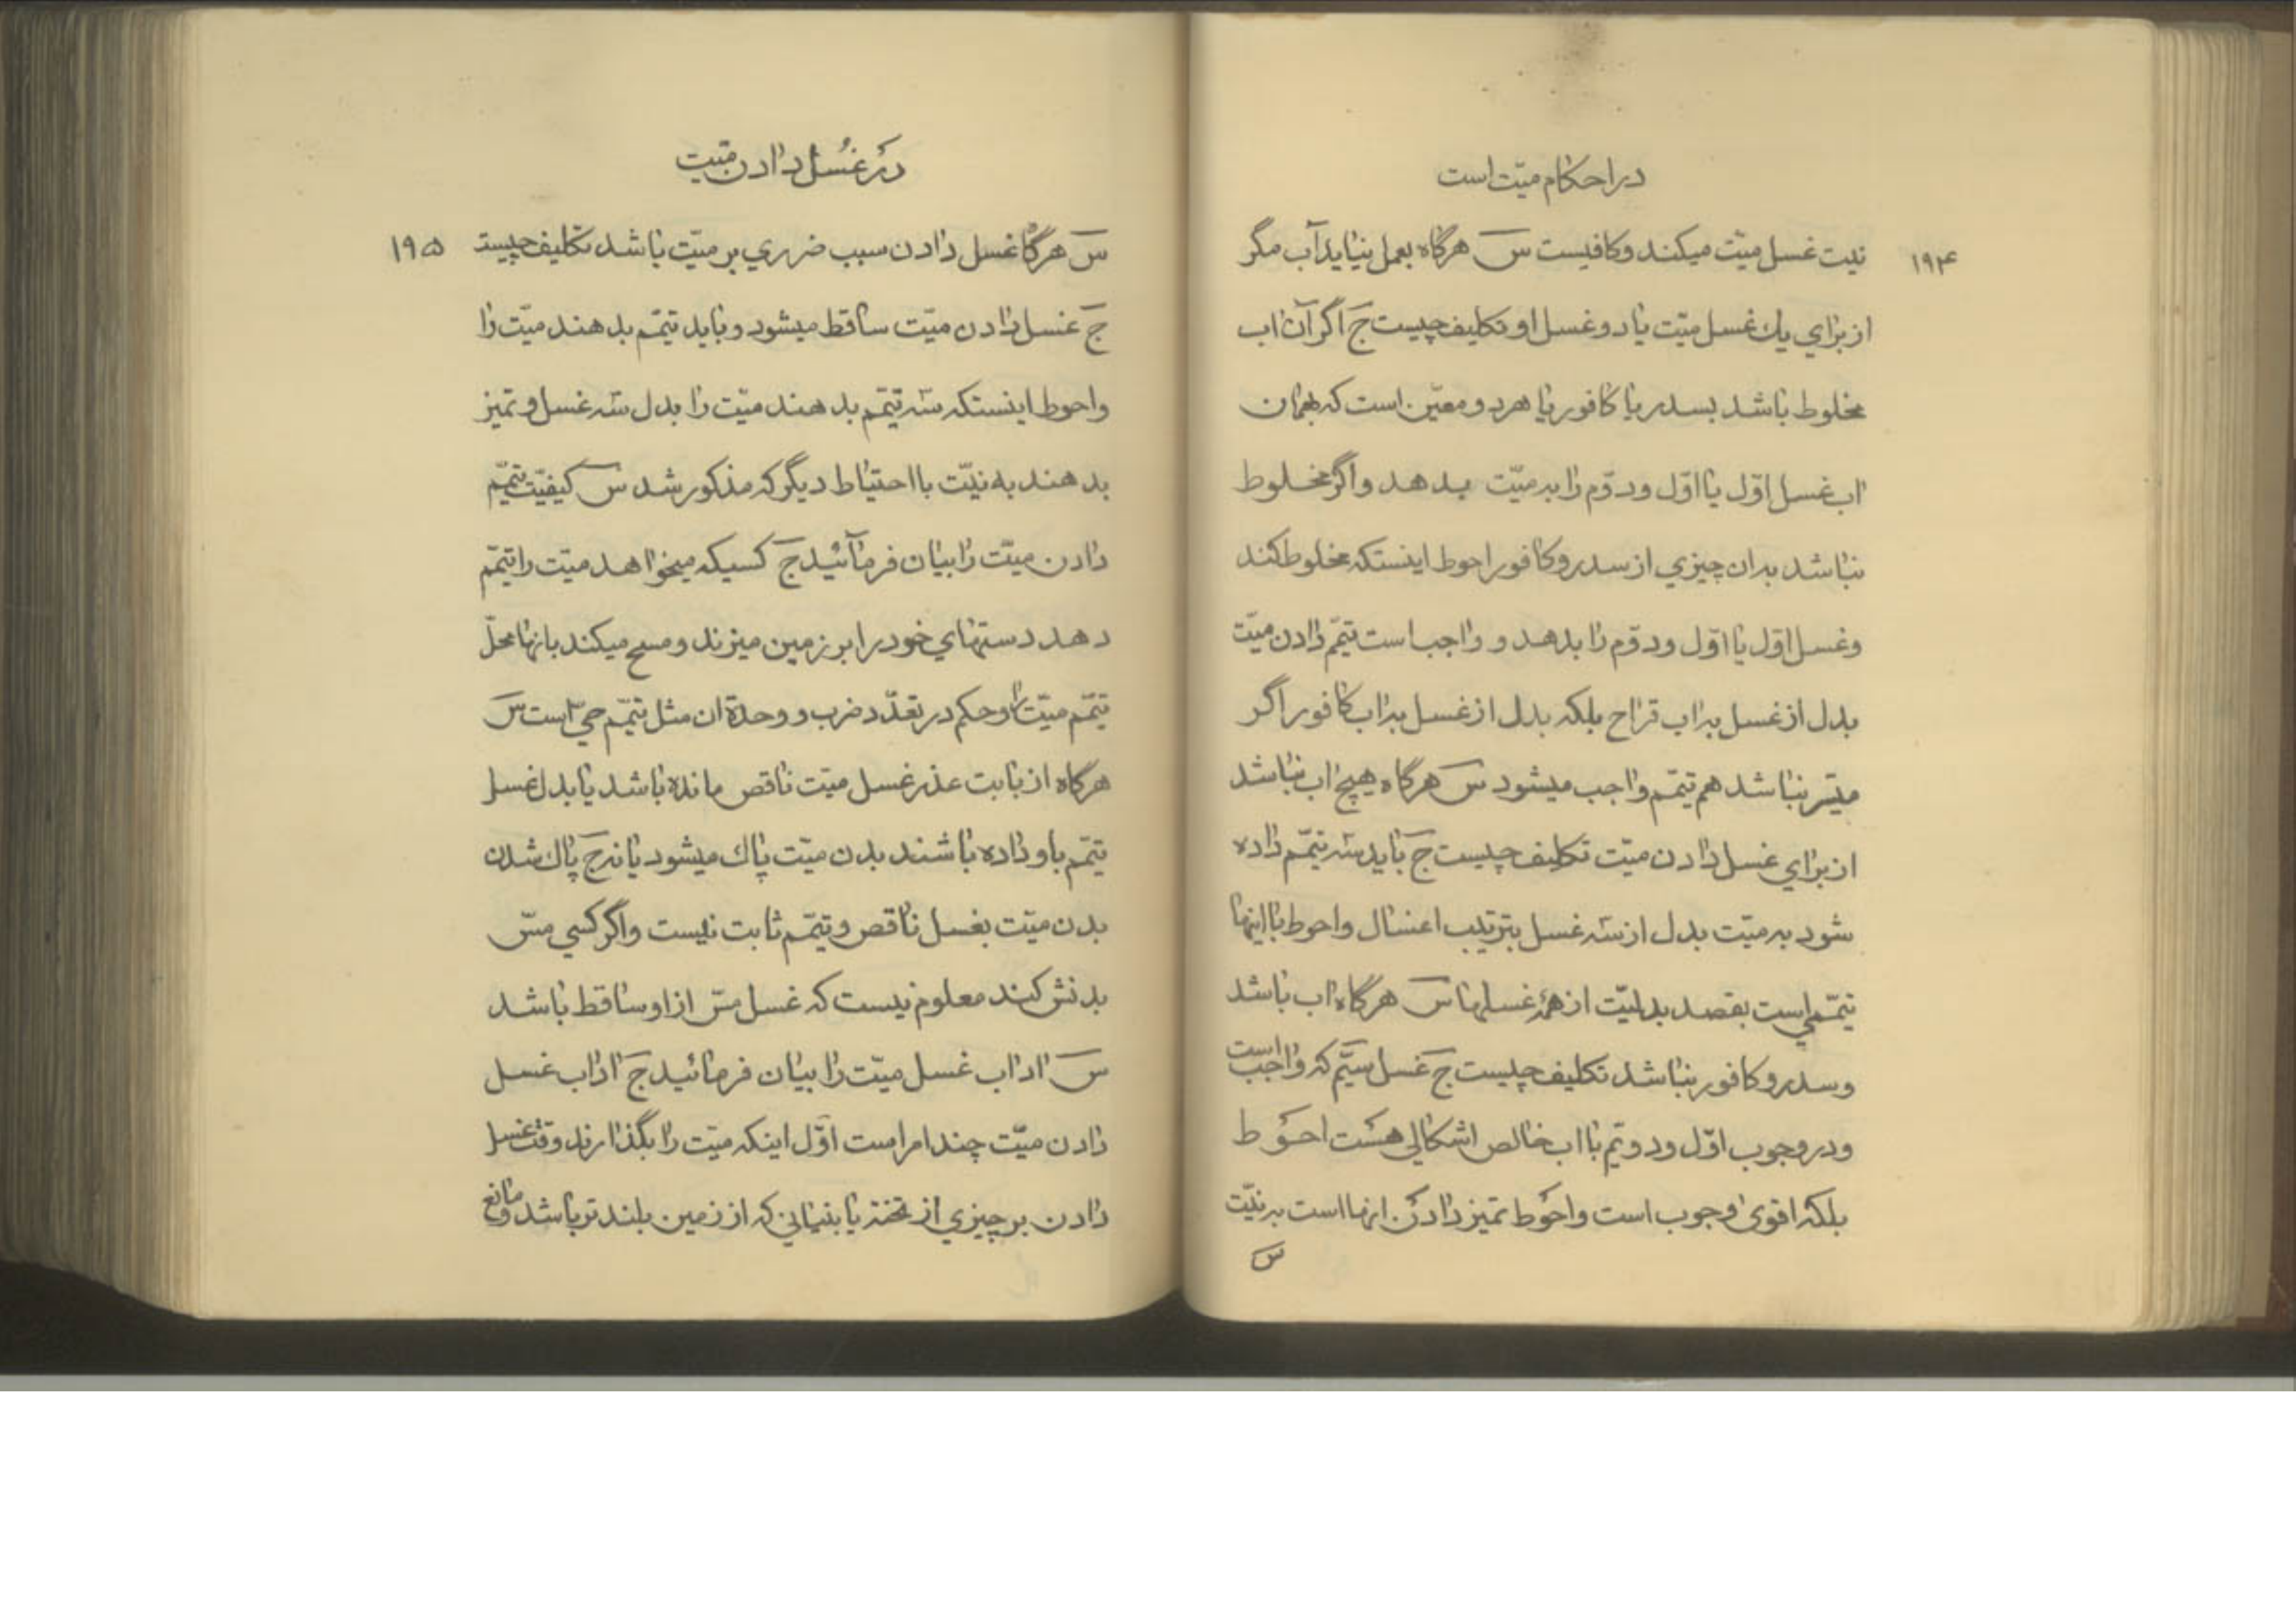 در احکام میّت است
۱۹۴
نیت غسل میّت میکند و کافیست س هرگاه بعمل نیاید آب مگر
از برای یك غسل میّت یا دو غسل او تکلیف چیست ج اگر آن اب
مخلوط باشد بسدر یا کافور یا هر دو معیّن است که بهمان
اب غسل اوّل یا اوّل و دوّم را به میّت بدهد و اگر مخلوط
نباشد بدان چیزي از سدر و کافور احوط اینستکه مخلوط کند
و غسل اوّل یا اوّل و دوّم را بدهد و واجب است تیمّم دادن میّت
بدل از غسل به اب قراح بلکه بدل از غسل به اب کافور اگر
میسّر نباشد هم تیمّم واجب میشود س هرگاه هیچ اب نباشد
از برای غسل دادن میّت تکلیف چیست ج باید سه تیمّم داده
شود به میّت بدل از سه غسل بترتیب اغسال و احوط با اینها
تیمّمی است بقصد بدلیّت از همهٔ غسلها س هرگاه اب باشد
و سدر و کافور نباشد تکلیف چیست ج غسل سیّم که واجب است
و در وجوب اوّل و دویّم با اب خالص اشکالی هست احوط
بلکه اقوی وجوب است و احوط تمیز دادن انها است به نیّت
س
در غسل دادن میّت
۱۹۵
س هرگاه غسل دادن سبب ضرری بر میّت باشد تکلیف چیست
ج غسل دادن میّت ساقط میشود و باید تیمّم بدهند میّت را
و احوط اینستکه سه تیمّم بدهند میّت را بدل سه غسل و تمیز
بدهند به نیّت با احتیاط دیگر که مذکور شد س کیفیّت تیمّم
دادن میّت را بیان فرمائید ج کسیکه میخواهد میّت را تیمّم
دهد دستهای خود را بر زمین میزند و مسح میکند بانها محلّ
تیمّم میّت را و حکم در تعدّد ضرب و وحدة ان مثل تیمّم حیّ است س
هرگاه از بابت عذر غسل میّت ناقص مانده باشد یا بدل غسل
تیمّم باو داده باشند بدن میّت پاك میشود یا نه ج پاك شدن
بدن میّت بغسل ناقص و تیمّم ثابت نیست و اگر کسی مسّ
بدنش کند معلوم نیست که غسل مسّ از او ساقط باشد
س اداب غسل میّت را بیان فرمائید ج اداب غسل
دادن میّت چند امر است اوّل اینکه میّت را بگذارند وقت غسل
دادن بر چیزی از تخته یا بنیانی که از زمین بلندتر باشد و مانع